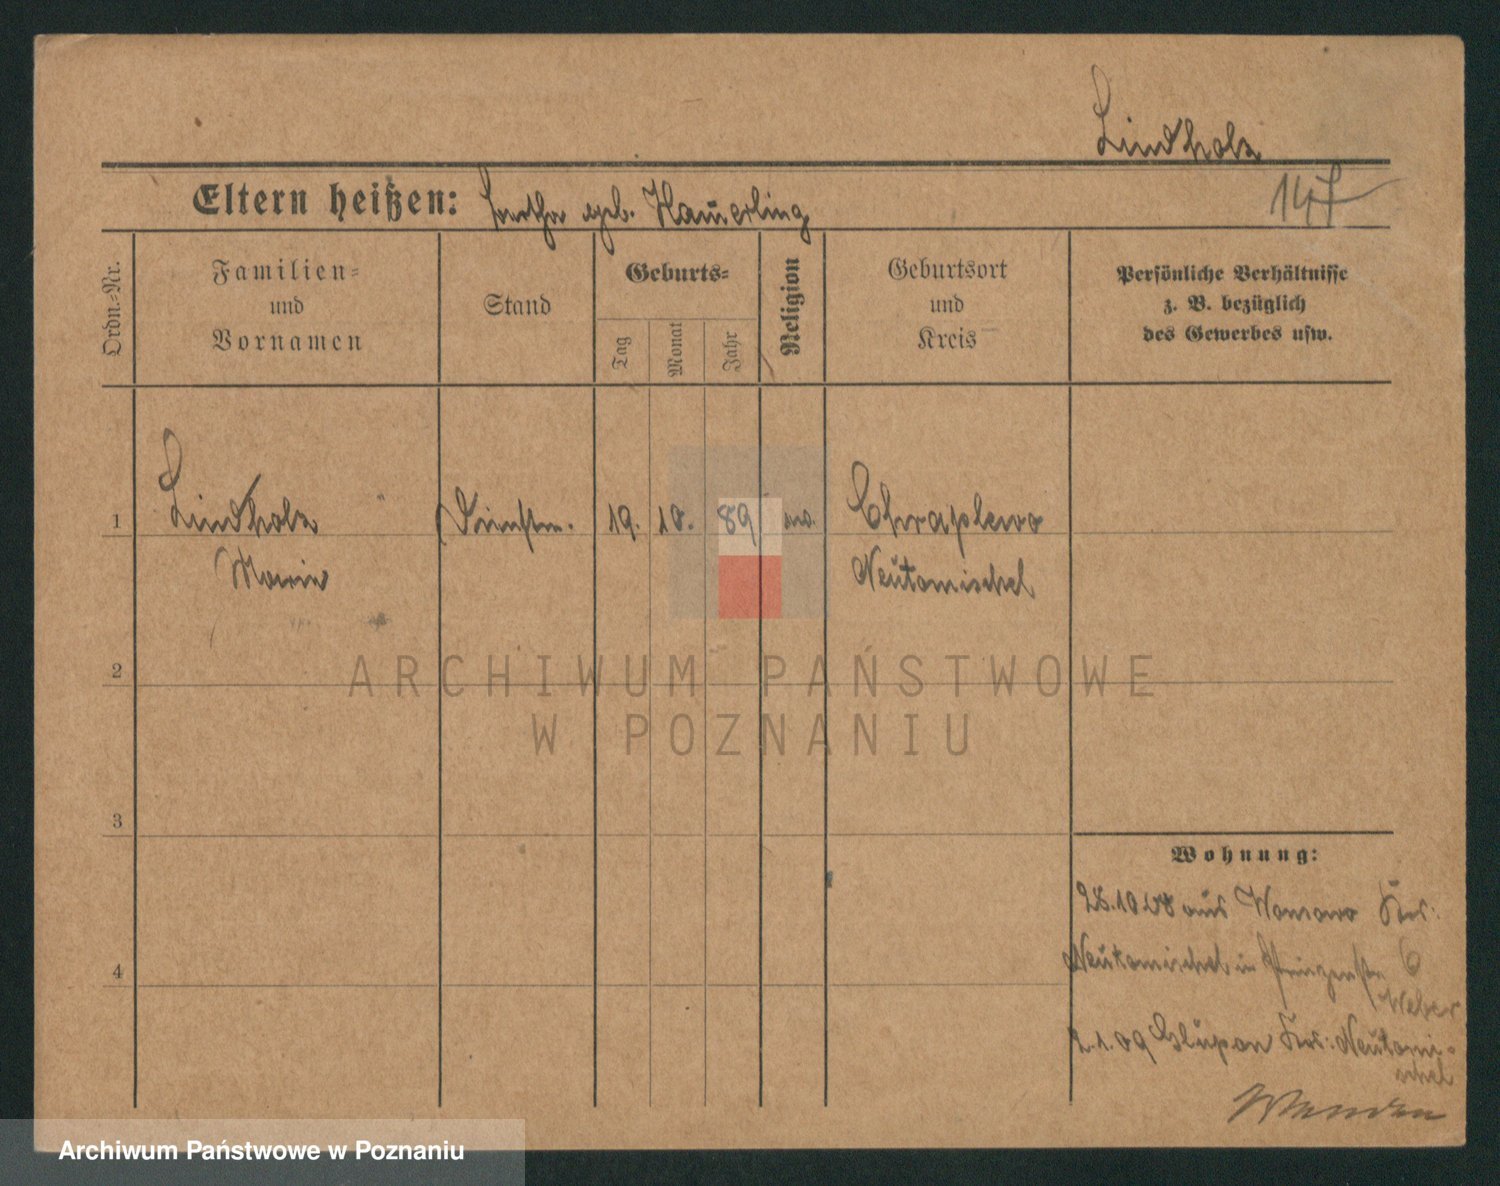 Lindholz
Eltern heißen: geb. Hämerling
147
Ordn.-Nr.
Familien-
und
Vornamen
Stand
Geburts-
Tag
Monat
Jahr
Religion
Geburtsort
und
Kreis
Persönliche Verhältnisse
z. B. bezüglich
des Gewerbes usw.
1
Lindholz
Marie
Dienstm.
19. 10. 89
ev.
Chraplewo
Neutomischel
2
ARCHIWUM PAŃSTWOWE
W POZNANIU
3
4
Wohnung:
28.10.08 aus Wonsowo Krs.
Neutomischel in Prinzenstr. 6
Weber
2.1.09 Glupon Krs. Neutomi-
schel
Archiwum Państwowe w Poznaniu